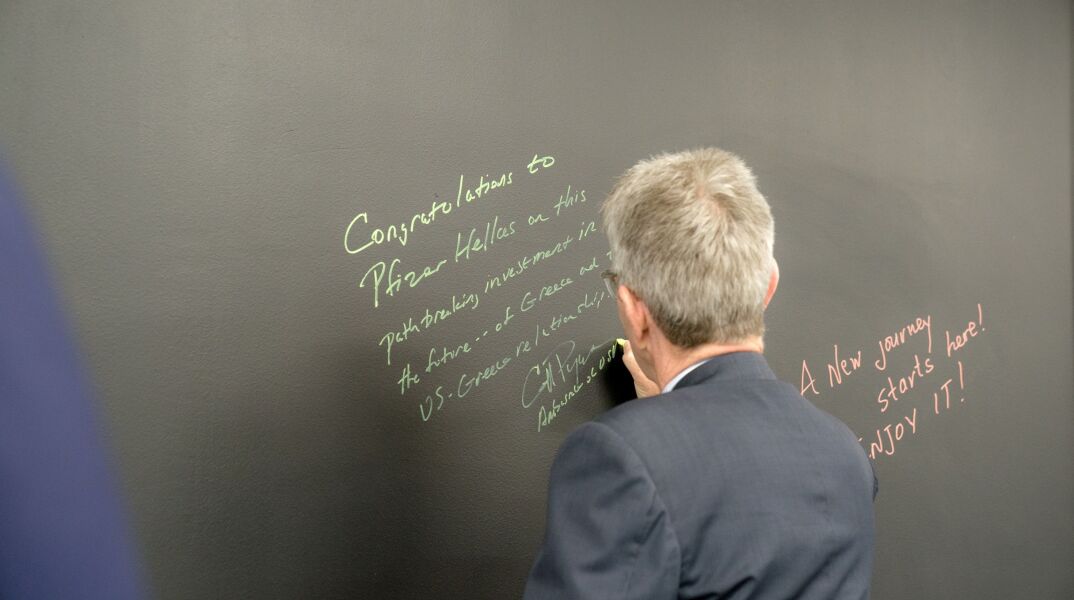 Congratulations to
Pfizer Hellas on this
pathbreaking investment in
the future -- of Greece and
US-Greece relationship.
A New journey
starts here!
ENJOY IT!